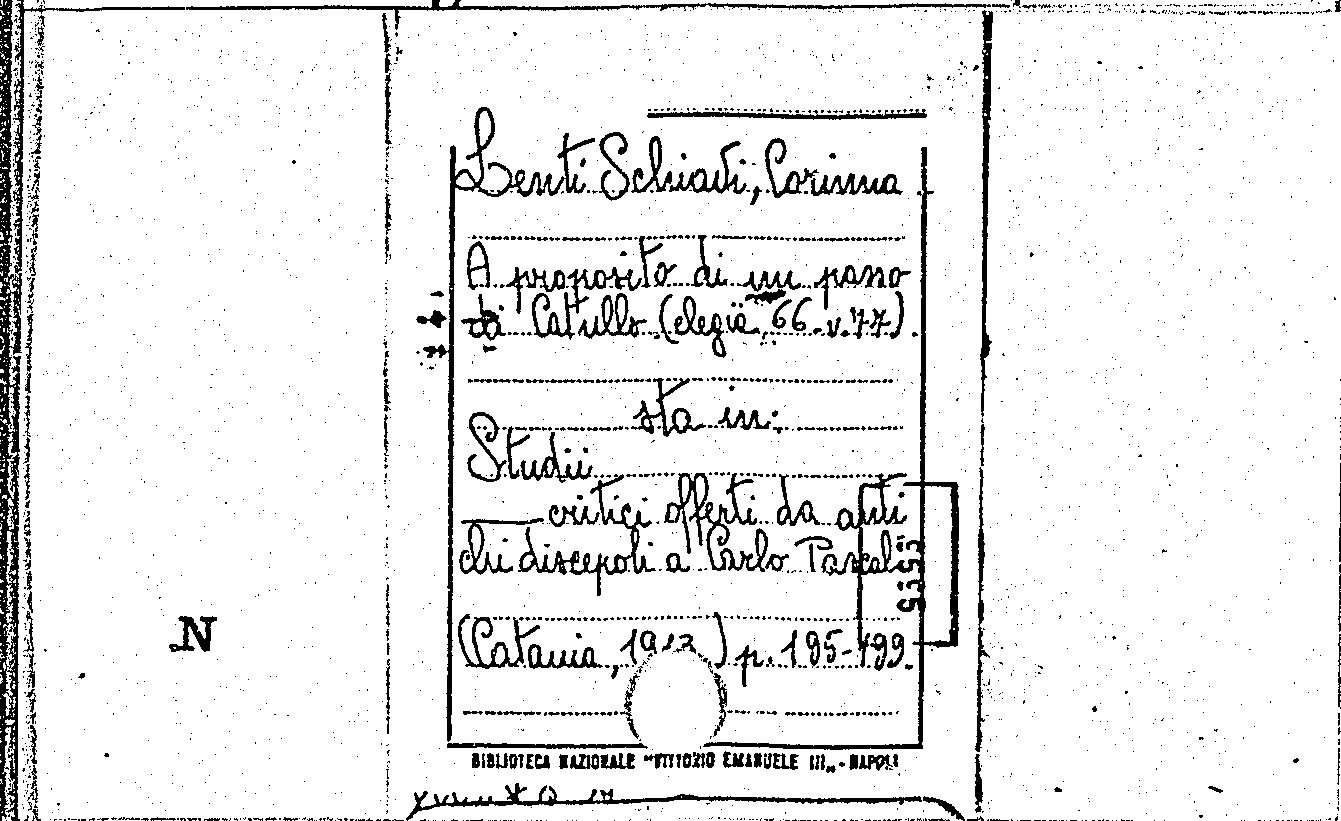 Lenti Schiavi, Corinna
A proposito di un passo
di Catullo (elegia, 66-v.77).
sta in:
Studii
critici offerti da anti
chi discepoli a Carlo Pascal.
(Catania, 1913) p. 195-199.
N
BIBLIOTECA NAZIONALE "VITTORIO EMANUELE III„ - NAPOLI